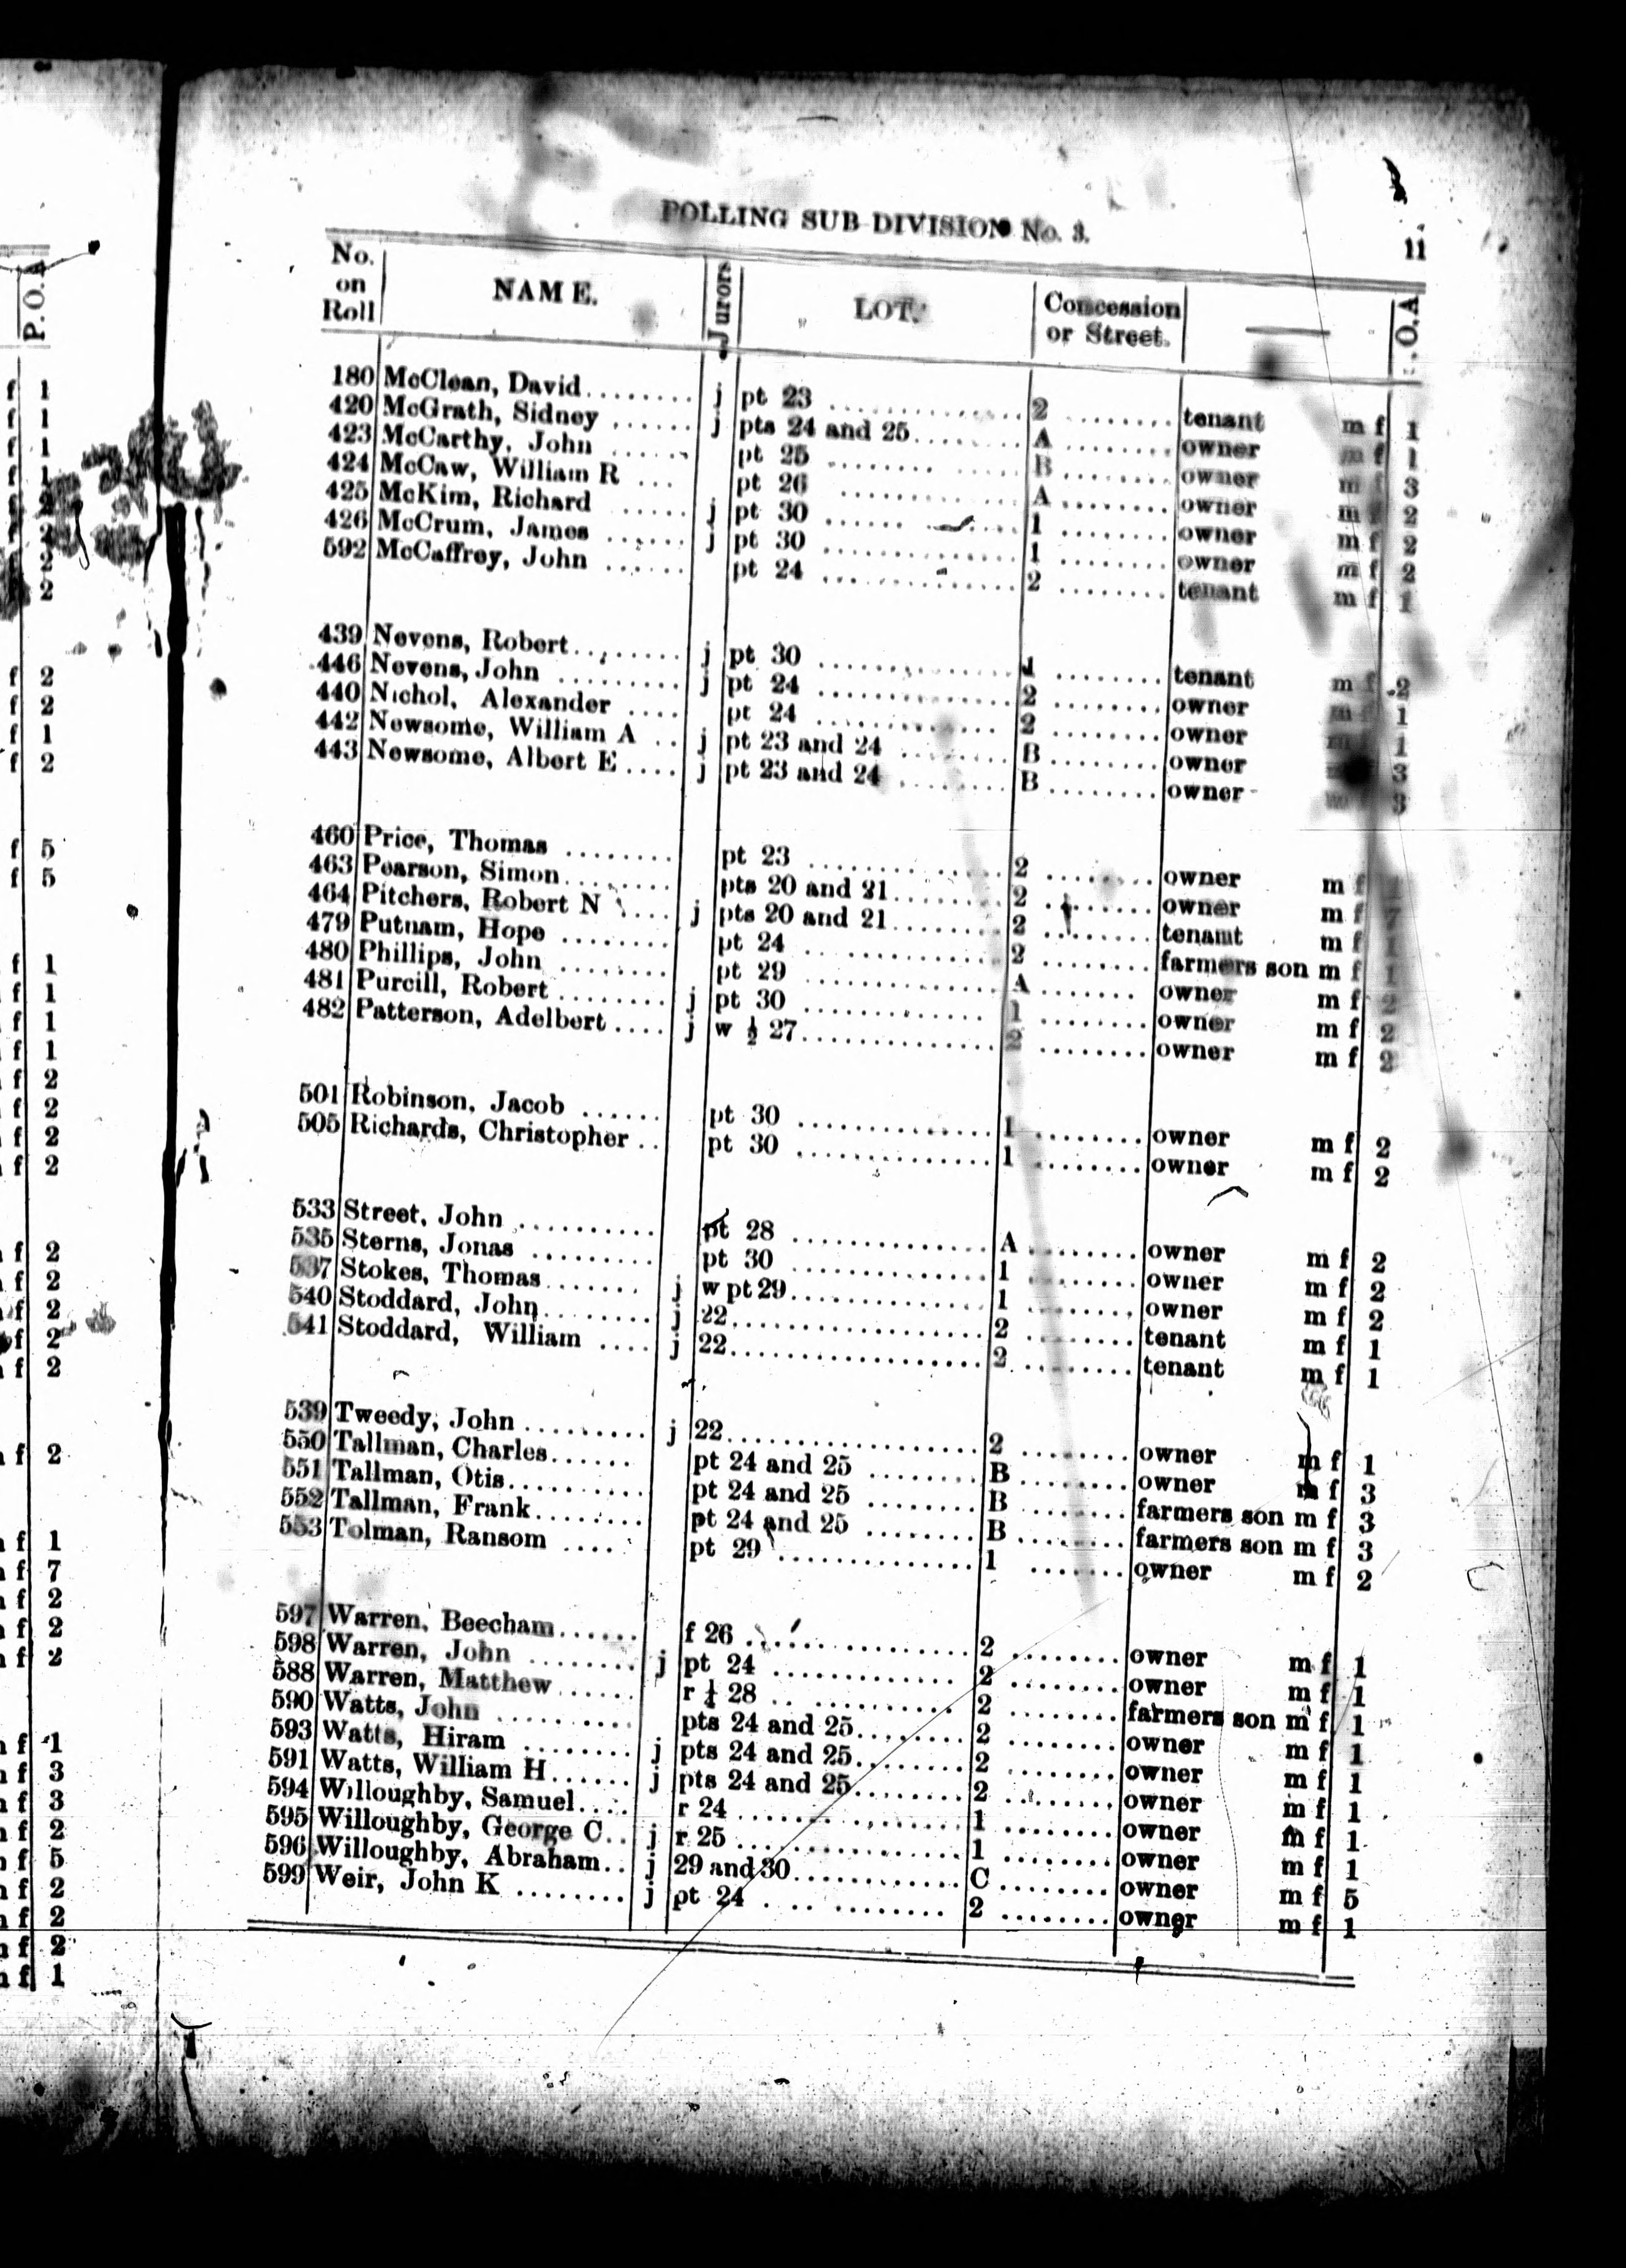 POLLING SUB-DIVISION No. 3. 11
No. on Roll NAME. Jurors LOT. Concession or Street. P.O.A
180 McClean, David........ j pt 23 .............. 2 ........ tenant m f 1
420 McGrath, Sidney ...... j pts 24 and 25....... A ........ owner m f 1
423 McCarthy, John ...... pt 25 ........ ...... B ........ owner m f 3
424 McCaw, William R ... pt 26 ............ A ........ owner m f 2
425 McKim, Richard ...... j pt 30 ...... .... 1 ........ owner m f 2
426 McCrum, James ...... j pt 30 .............. 1 ........ owner m f 2
592 McCaffrey, John ...... pt 24 .............. 2 ........ tenant m f 1
439 Nevens, Robert......... j pt 30 .............. 1 ........ tenant m f 2
446 Nevens, John ......... j pt 24 .............. 2 ........ owner m f 1
440 Nichol, Alexander .... pt 24 .............. 2 ........ owner m f 1
442 Newsome, William A .. j pt 23 and 24 ........ B ........ owner 3
443 Newsome, Albert E .... j pt 23 and 24 ........ B ........ owner 3
460 Price, Thomas ........ pt 23 .............. 2 ........ owner m f
463 Pearson, Simon........ pts 20 and 21....... 2 ........ owner m f 7
464 Pitchers, Robert N .... j pts 20 and 21....... 2 ........ tenant m f 1
479 Putnam, Hope ........ pt 24 .............. 2 ........ farmers son m f 1
480 Phillips, John ........ pt 29 .............. A ....... owner m f 2
481 Purcill, Robert ........ j pt 30 .............. 1 ........ owner m f 2
482 Patterson, Adelbert .... j w ½ 27.............. 2 ........ owner m f 2
501 Robinson, Jacob ...... pt 30 .............. 1 ........ owner m f 2
505 Richards, Christopher .. pt 30 .............. 1 ........ owner m f 2
533 Street, John .......... pt 28 .............. A ........ owner m f 2
535 Sterns, Jonas ......... pt 30 .............. 1 ........ owner m f 2
537 Stokes, Thomas....... j w pt 29.............. 1 ........ owner m f 2
540 Stoddard, John........ j 22.................. 2 ........ tenant m f 1
541 Stoddard, William .... j 22.................. 2 ........ tenant m f 1
539 Tweedy, John .......... j 22.................. 2 ........ owner m f 1
550 Tallman, Charles...... pt 24 and 25 ........ B ........ owner m f 3
551 Tallman, Otis.......... pt 24 and 25 ........ B ........ farmers son m f 3
552 Tallman, Frank........ pt 24 and 25 ........ B ........ farmers son m f 3
553 Tolman, Ransom .... pt 29 .............. 1 ....... owner m f 2
597 Warren, Beecham...... f 26 ................ 2 ........ owner m f 1
598 Warren, John ........ j pt 24 .............. 2 ........ owner m f 1
588 Warren, Matthew ...... r ½ 28 .. .......... 2 ........ farmers son m f 1
590 Watts, John .......... pts 24 and 25........ 2 ........ owner m f 1
593 Watts, Hiram ........ j pts 24 and 25........ 2 ........ owner m f 1
591 Watts, William H...... j pts 24 and 25........ 2 ........ owner m f 1
594 Willoughby, Samuel.... r 24 ................ 1 ........ owner m f 1
595 Willoughby, George C.. j r 25 ................ 1 ........ owner m f 1
596 Willoughby, Abraham.. j 29 and 30............ C ........ owner m f 5
599 Weir, John K ........ j pt 24 .............. 2 ........ owner m f 1